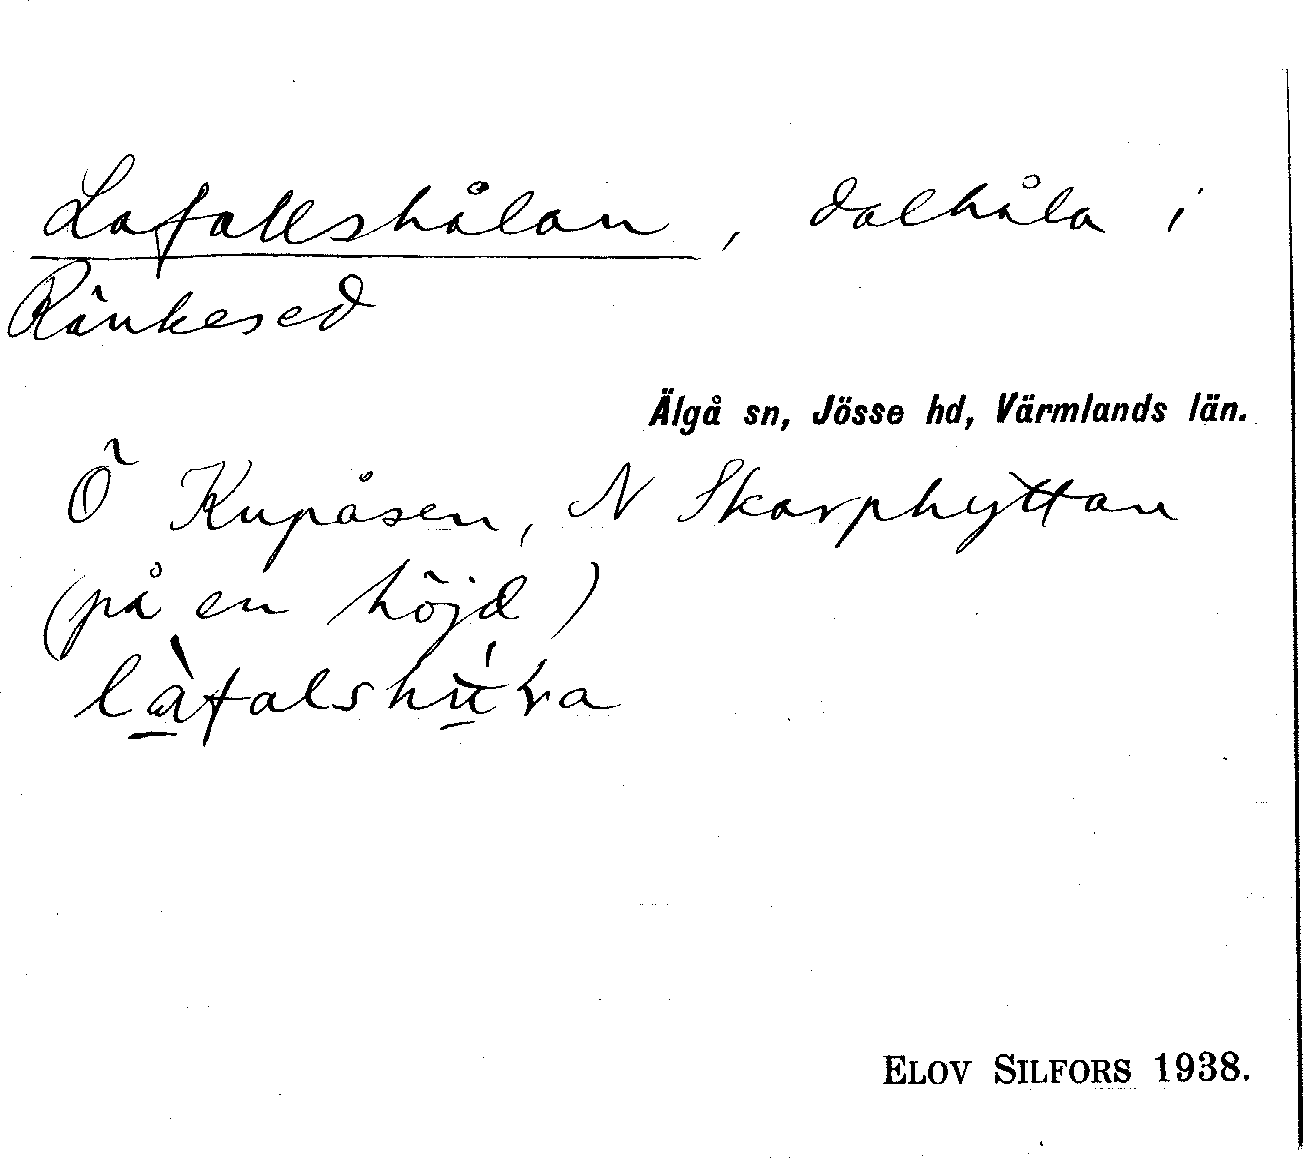 Lafallshålan, dalhåla i
Ränkesed
Älgå sn, Jösse hd, Värmlands län.
Ö Kupåsen, N Skarphyttan
(på en höjd)
ELOV SILFORS 1938.